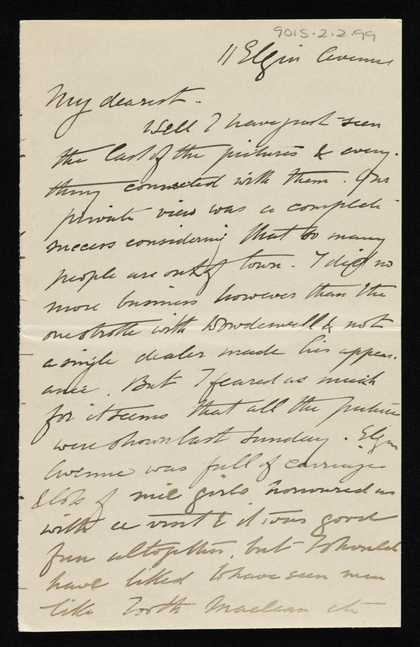 9015-2-2-99
11 Elgin Avenue
My dearest.
Well I have just seen
the last of the pictures & every-
thing connected with them. Our
private view was a complete
success considering that so many
people are out of town. I did no
more business however than the
one stroke with Dowdeswell & not
a single dealer made his appear-
ance. But I feared as much
for it seems that all the pictures
were shown last Sunday. Elgin
Avenue was full of carriages
& lots of nice girls honoured us
with a visit & it was good
fun altogether, but I should
have liked to have seen men
like Tooth Maclean etc